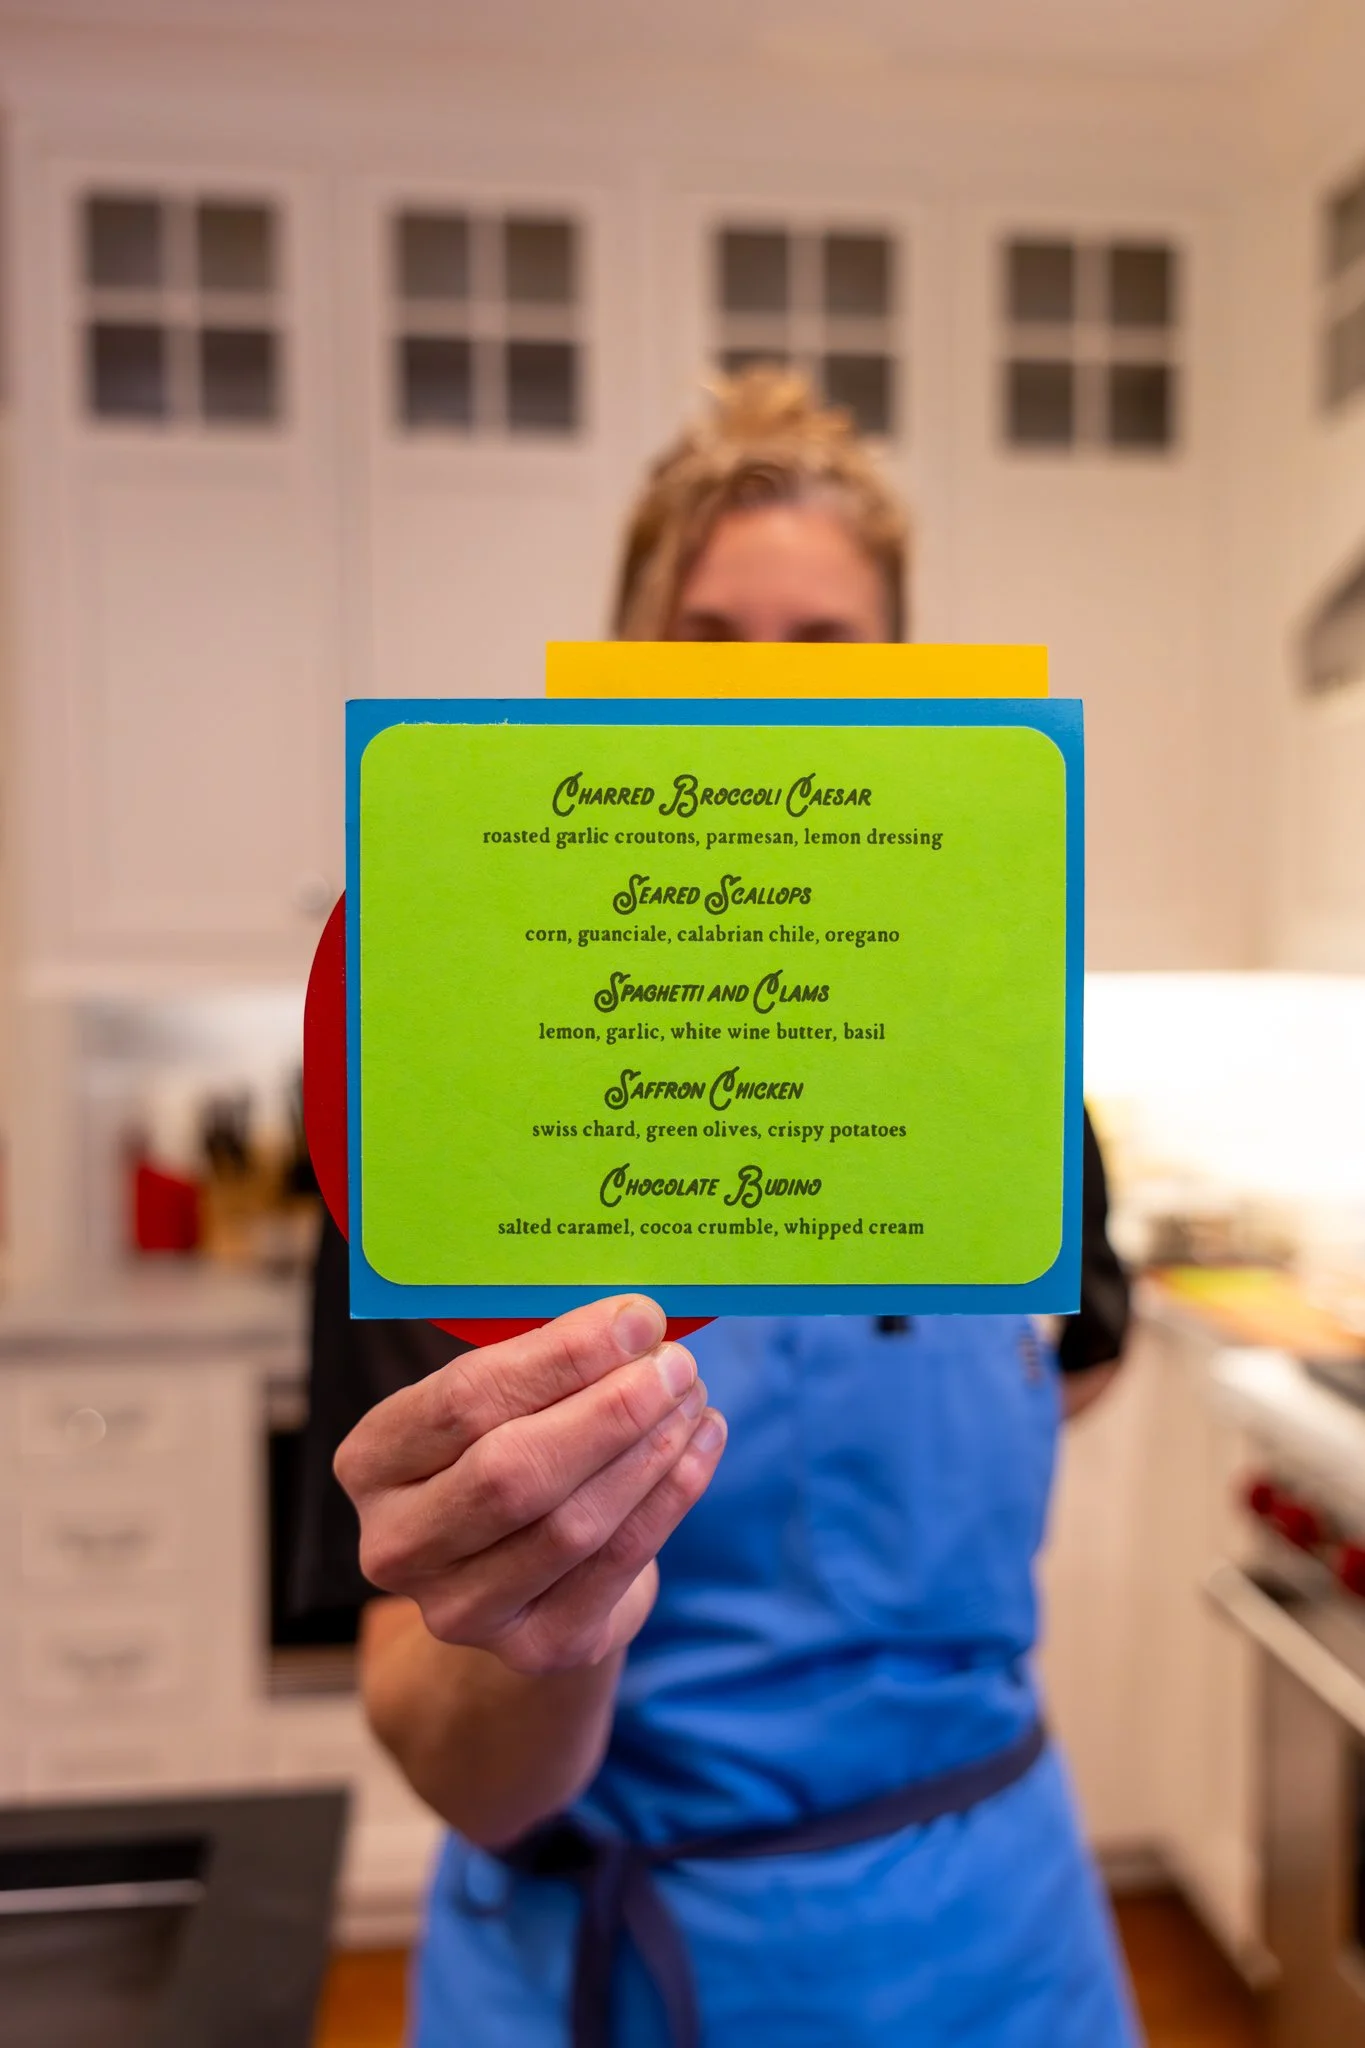 Charred Broccoli Caesar
roasted garlic croutons, parmesan, lemon dressing
Seared Scallops
corn, guanciale, calabrian chile, oregano
Spaghetti and Clams
lemon, garlic, white wine butter, basil
Saffron Chicken
swiss chard, green olives, crispy potatoes
Chocolate Budino
salted caramel, cocoa crumble, whipped cream